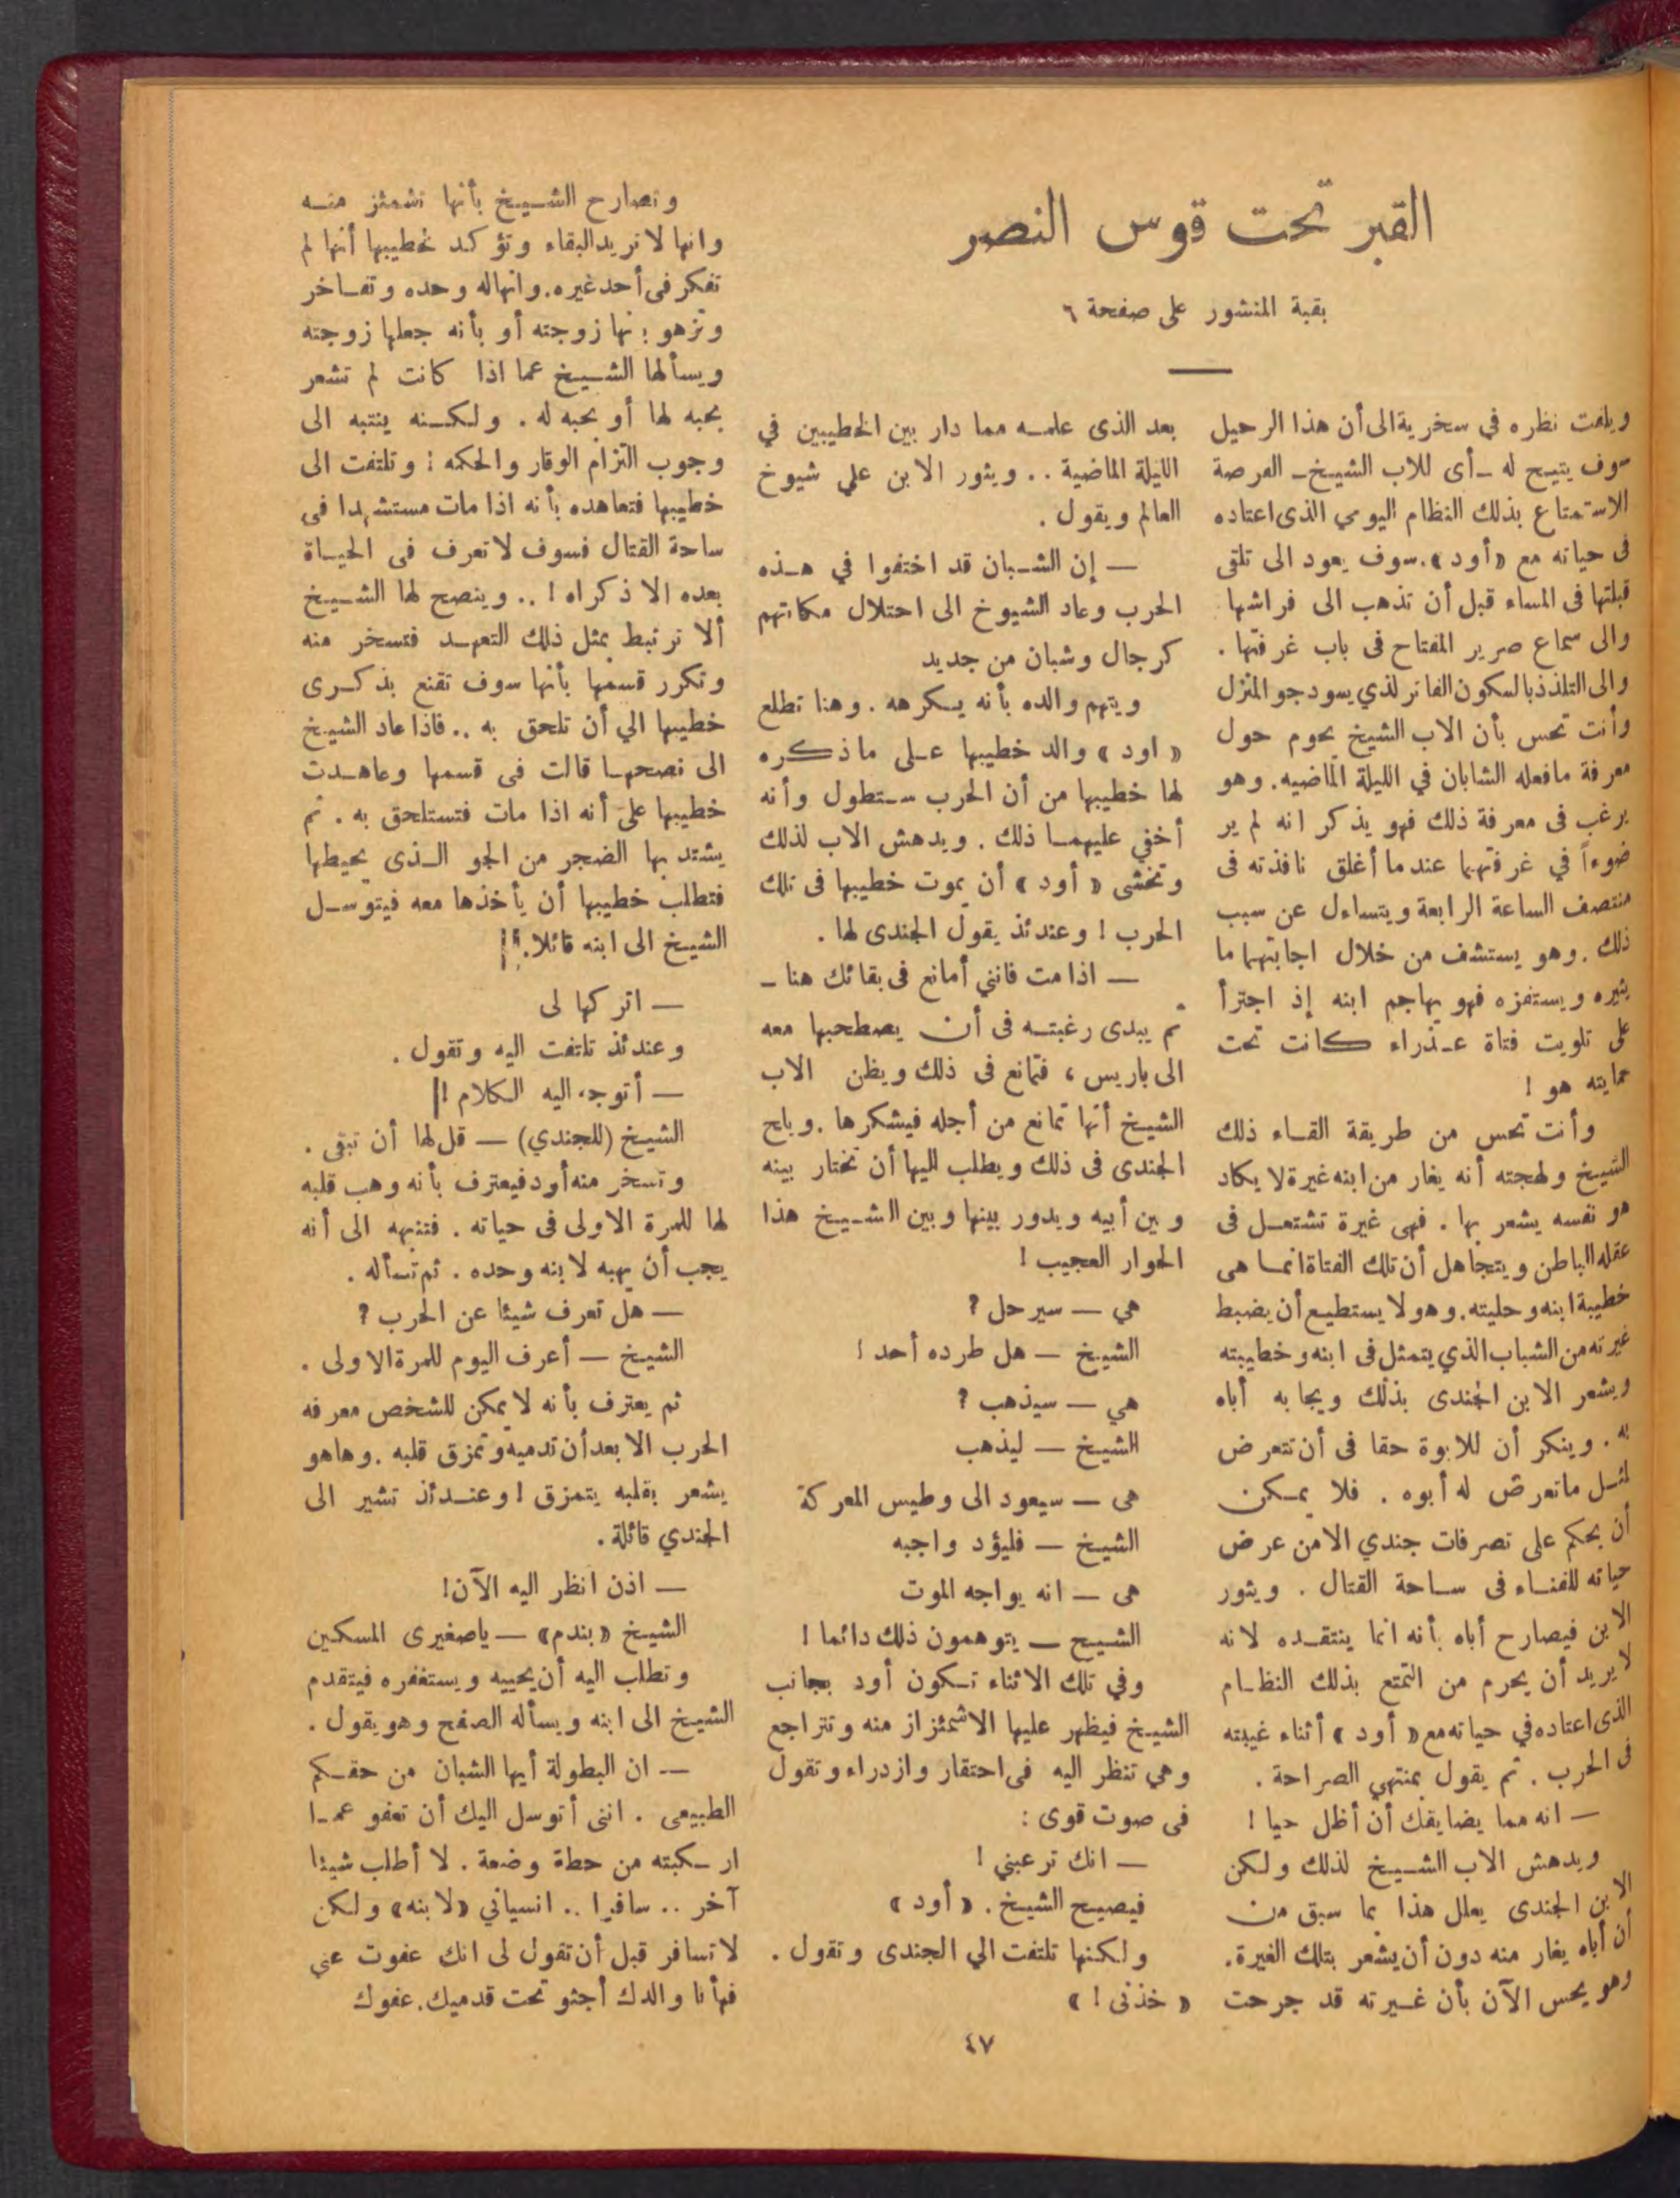 القبر تحت قوس النصر
بقية المنشور على صفحة ٦
ويلفت نظره في سخرية الى أن هذا الرحيل
سوف يتيح له ـ أى للاب الشيخ ـ الفرصة
الاستمتاع بذلك النظام اليومي الذى اعتاده
فى حياته مع «أود». سوف يعود الى تلقى
قبلتها فى المساء قبل أن تذهب الى فراشها
والى سماع صرير المفتاح فى باب غرفتها .
والى التلذذ بالسكون الفاتر لذي يسود جو المنزل
وأنت تحس بأن الاب الشيخ يحوم حول
معرفة مافعله الشابان في الليلة الماضيه. وهو
يرغب فى معرفة ذلك فهو يذكر انه لم ير
ضوءاً في غرفتهما عند ما أغلق نافذته فى
منتصف الساعة الرابعة ويتساءل عن سبب
ذلك . وهو يستشف من خلال اجابتهما ما
يثيره ويستفزه فهو يهاجم ابنه إذ اجترأ
على تلويت فتاة عـذراء كانت تحت
حمايته هو !
وأنت تحس من طريقة القاء ذلك
الشيخ ولهجته أنه يغار من ابنه غيرة لا يكاد
هو نفسه يشعر بها . فهى غيرة تشتعل فى
عقله الباطن ويتجاهل أن تلك الفتاة انما هى
خطيبة ابنه وحليته. وهو لا يستطيع أن يضبط
غيرته من الشباب الذي يتمثل فى ابنه وخطيبته
ويشعر الابن الجندى بذلك ويجابه أباه
به . وينكر أن للابوة حقا فى أن تتعرض
لمثل ماتعرض له أبوه . فلا يمكن
أن يحكم على تصرفات جندي الامن عرض
حياته للفناء فى ساحة القتال . ويثور
الابن فيصارح أباه بأنه انما ينتقده لانه
لا يريد أن يحرم من التمتع بذلك النظام
الذى اعتاده في حياته مع «أود» أثناء غيبته
فى الحرب . ثم يقول بمنتهي الصراحة .
— انه مما يضايقك أن أظل حيا !
ويدهش الاب الشيخ لذلك ولكن
الابن الجندى يعلل هذا بما سبق من
أن أباه يغار منه دون أن يشعر بتلك الغيرة.
وهو يحس الآن بأن غيرته قد جرحت
بعد الذى علمه مما دار بين الخطيبين في
الليلة الماضية . . ويثور الابن علي شيوخ
العالم ويقول .
— إن الشبان قد اختفوا في هذه
الحرب وعاد الشيوخ الى احتلال مكانتهم
كرجال وشبان من جديد
ويتهم والده بأنه يكرهه . وهنا تطلع
«اود» والد خطيبها على ماذكره
لها خطيبها من أن الحرب ستطول وأنه
أخفي عليهما ذلك . ويدهش الاب لذلك
وتخشى «أود» أن يموت خطيبها فى تلك
الحرب ! وعندئذ يقول الجندى لها .
— اذا مت فانني أمانع فى بقائك هنا ـ
ثم يبدى رغبته فى أن يصطحبها معه
الى باريس ، فتمانع فى ذلك ويظن الاب
الشيخ أنها تمانع من أجله فيشكرها . ويلح
الجندى فى ذلك ويطلب اليها أن تختار بينه
وبين أبيه ويدور بينها وبين الشيخ هذا
الحوار العجيب !
هي — سيرحل ?
الشيخ — هل طرده أحد !
هي — سيذهب ?
الشيخ — ليذهب
هى — سيعود الى وطيس المعركة
الشيخ — فليؤد واجبه
هى — انه يواجه الموت
الشيح — يتوهمون ذلك دائما !
وفي تلك الاثناء تكون أود بجانب
الشيخ فيظهر عليها الاشمئزاز منه وتتراجع
وهي تنظر اليه فى احتقار وازدراء وتقول
فى صوت قوى :
— انك ترعبني !
فيصيح الشيخ . «أود»
ولكنها تلتفت الي الجندى وتقول .
« خذنى ! »
وتصارح الشيخ بأنها تشمئز منه
وانها لا تريد البقاء وتؤكد لخطيبها أنها لم
تفكر فى أحد غيره. وانهاله وحده وتفاخر
وتزهو بـنها زوجته أو بأنه جعلها زوجته
ويسألها الشيخ عما اذا كانت لم تشعر
بحبه لها أو بحبه له . ولكنه ينتبه الى
وجوب التزام الوقار والحكمه ! وتلتفت الى
خطيبها فتعاهده بأنه اذا مات مستشهدا فى
ساحة القتال فسوف لا تعرف فى الحياة
بعده الا ذكراه ! .. وينصح لها الشيخ
ألا ترتبط بمثل ذلك التعهد فتسخر منه
وتكرر قسمها بأنها سوف تقنع بذكرى
خطيبها الي أن تلحق به .. فاذا عاد الشيخ
الى نصحها قالت فى قسمها وعاهدت
خطيبها على أنه اذا مات فتستلحق به . ثم
يشتد بها الضجر من الجو الذى يحيطها
فتطلب خطيبها أن يأخذها معه فيتوسل
الشيخ الى ابنه قائلا.
— اتركها لى
وعندئذ تلتفت اليه وتقول .
— أتوجه اليه الكلام !
الشيخ (للجندي) — قل لها أن تبقى .
وتسخر منه أود فيعترف بأنه وهب قلبه
لها للمرة الاولى فى حياته . فتنبهه الى أنه
يجب أن يهبه لابنه وحده . ثم تسأله .
— هل تعرف شيئا عن الحرب ?
الشيخ — أعرف اليوم للمرة الاولى .
ثم يعترف بأنه لا يمكن للشخص معرفه
الحرب الا بعد أن تدميه وتمزق قلبه . وهاهو
يشعر بقلبه يتمزق ! وعندئذ تشير الى
الجندي قائلة .
— اذن انظر اليه الآن!
الشيخ «بندم» — ياصغيرى المسكين
وتطلب اليه أن يحييه ويستغفره فيتقدم
الشيخ الى ابنه ويسأله الصفح وهو يقول .
— ان البطولة أيها الشبان من حقكم
الطبيعى . اننى أتوسل اليك أن تعفو عما
ارتكبته من حطة وضعة . لا أطلب شيئا
آخر .. سافرا .. انسياني «لابنه» ولكن
لا تسافر قبل أن تقول لى انك عفوت عني
فهأنا والدك أجثو تحت قدميك. عفوك
٤٧